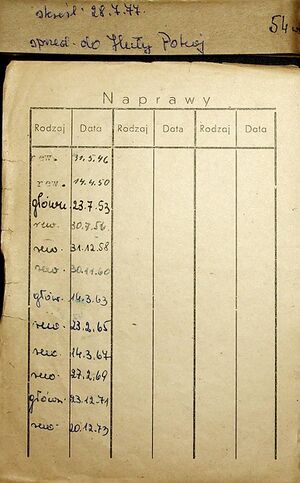 skreśl. 28.7.77.
54
sprzed. do Huty Pokój
Naprawy
Rodzaj Data Rodzaj Data Rodzaj Data
rew. 31.5.46
rew. 14.4.50
główn 23.7.53
rew. 30.7.56
rew. 31.12.58
rew. 30.11.60
główn. 14.3.63
rew. 23.2.65
rew. 14.3.67
rew. 27.2.69
główn. 23.12.71
rew. 20.12.73